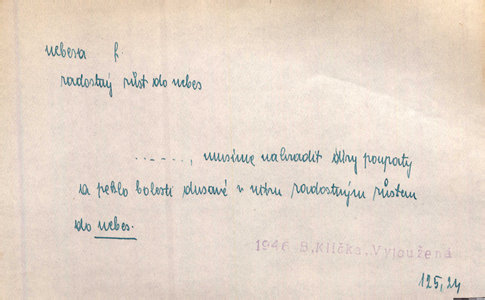 nebesa f.
radostný růst do nebes
......, musíme nahradit díry poupaty
a peklo bolesti dusavé v nitru radostným růstem
do nebes.
1946 B.Klička, Vyloužená
125,24